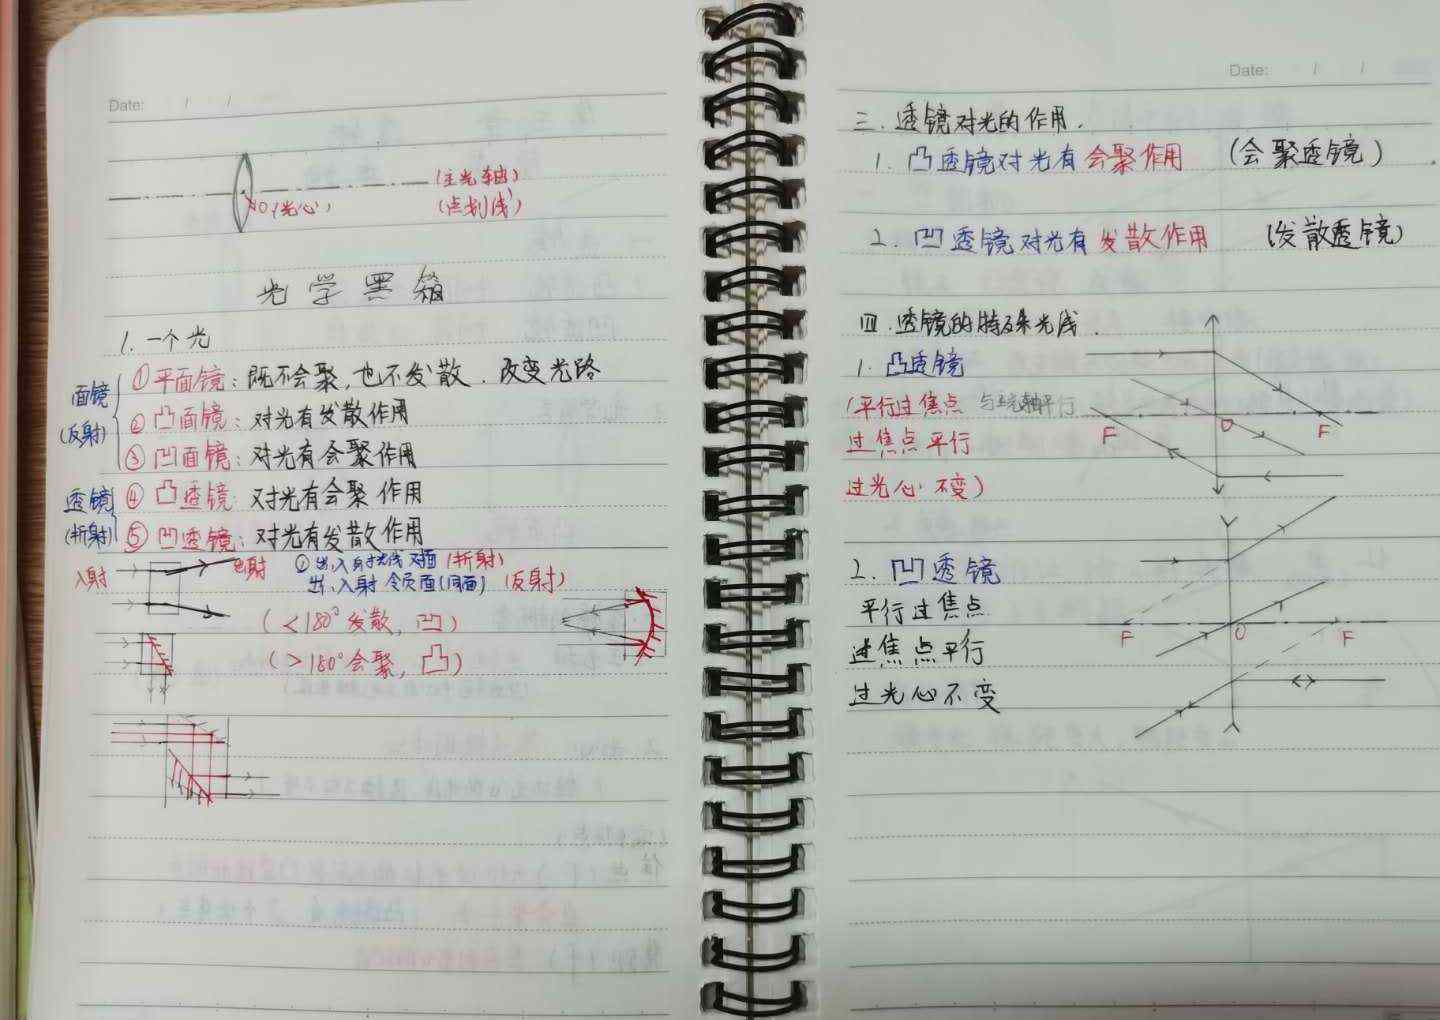 Date: / /
(主光轴)
O(光心)
(点划线)
光学黑箱
1. 一个光
面镜
(反射)
①平面镜:既不会聚,也不发散.改变光路
②凸面镜:对光有发散作用
③凹面镜:对光有会聚作用
透镜
(折射)
④凸透镜:对光有会聚作用
⑤凹透镜:对光有发散作用
入射 出射
①出、入射光线对面(折射)
出、入射 (同面)(反射)
(<180°发散,凹)
(>180°会聚,凸)
Date: / /
三.透镜对光的作用.
1.凸透镜对光有会聚作用 (会聚透镜)
2.凹透镜对光有发散作用 (发散透镜)
四.透镜的特殊光线.
1.凸透镜
(平行过焦点
过焦点平行
过光心不变)
F O F
2.凹透镜
平行过焦点
过焦点平行
过光心不变
F O F